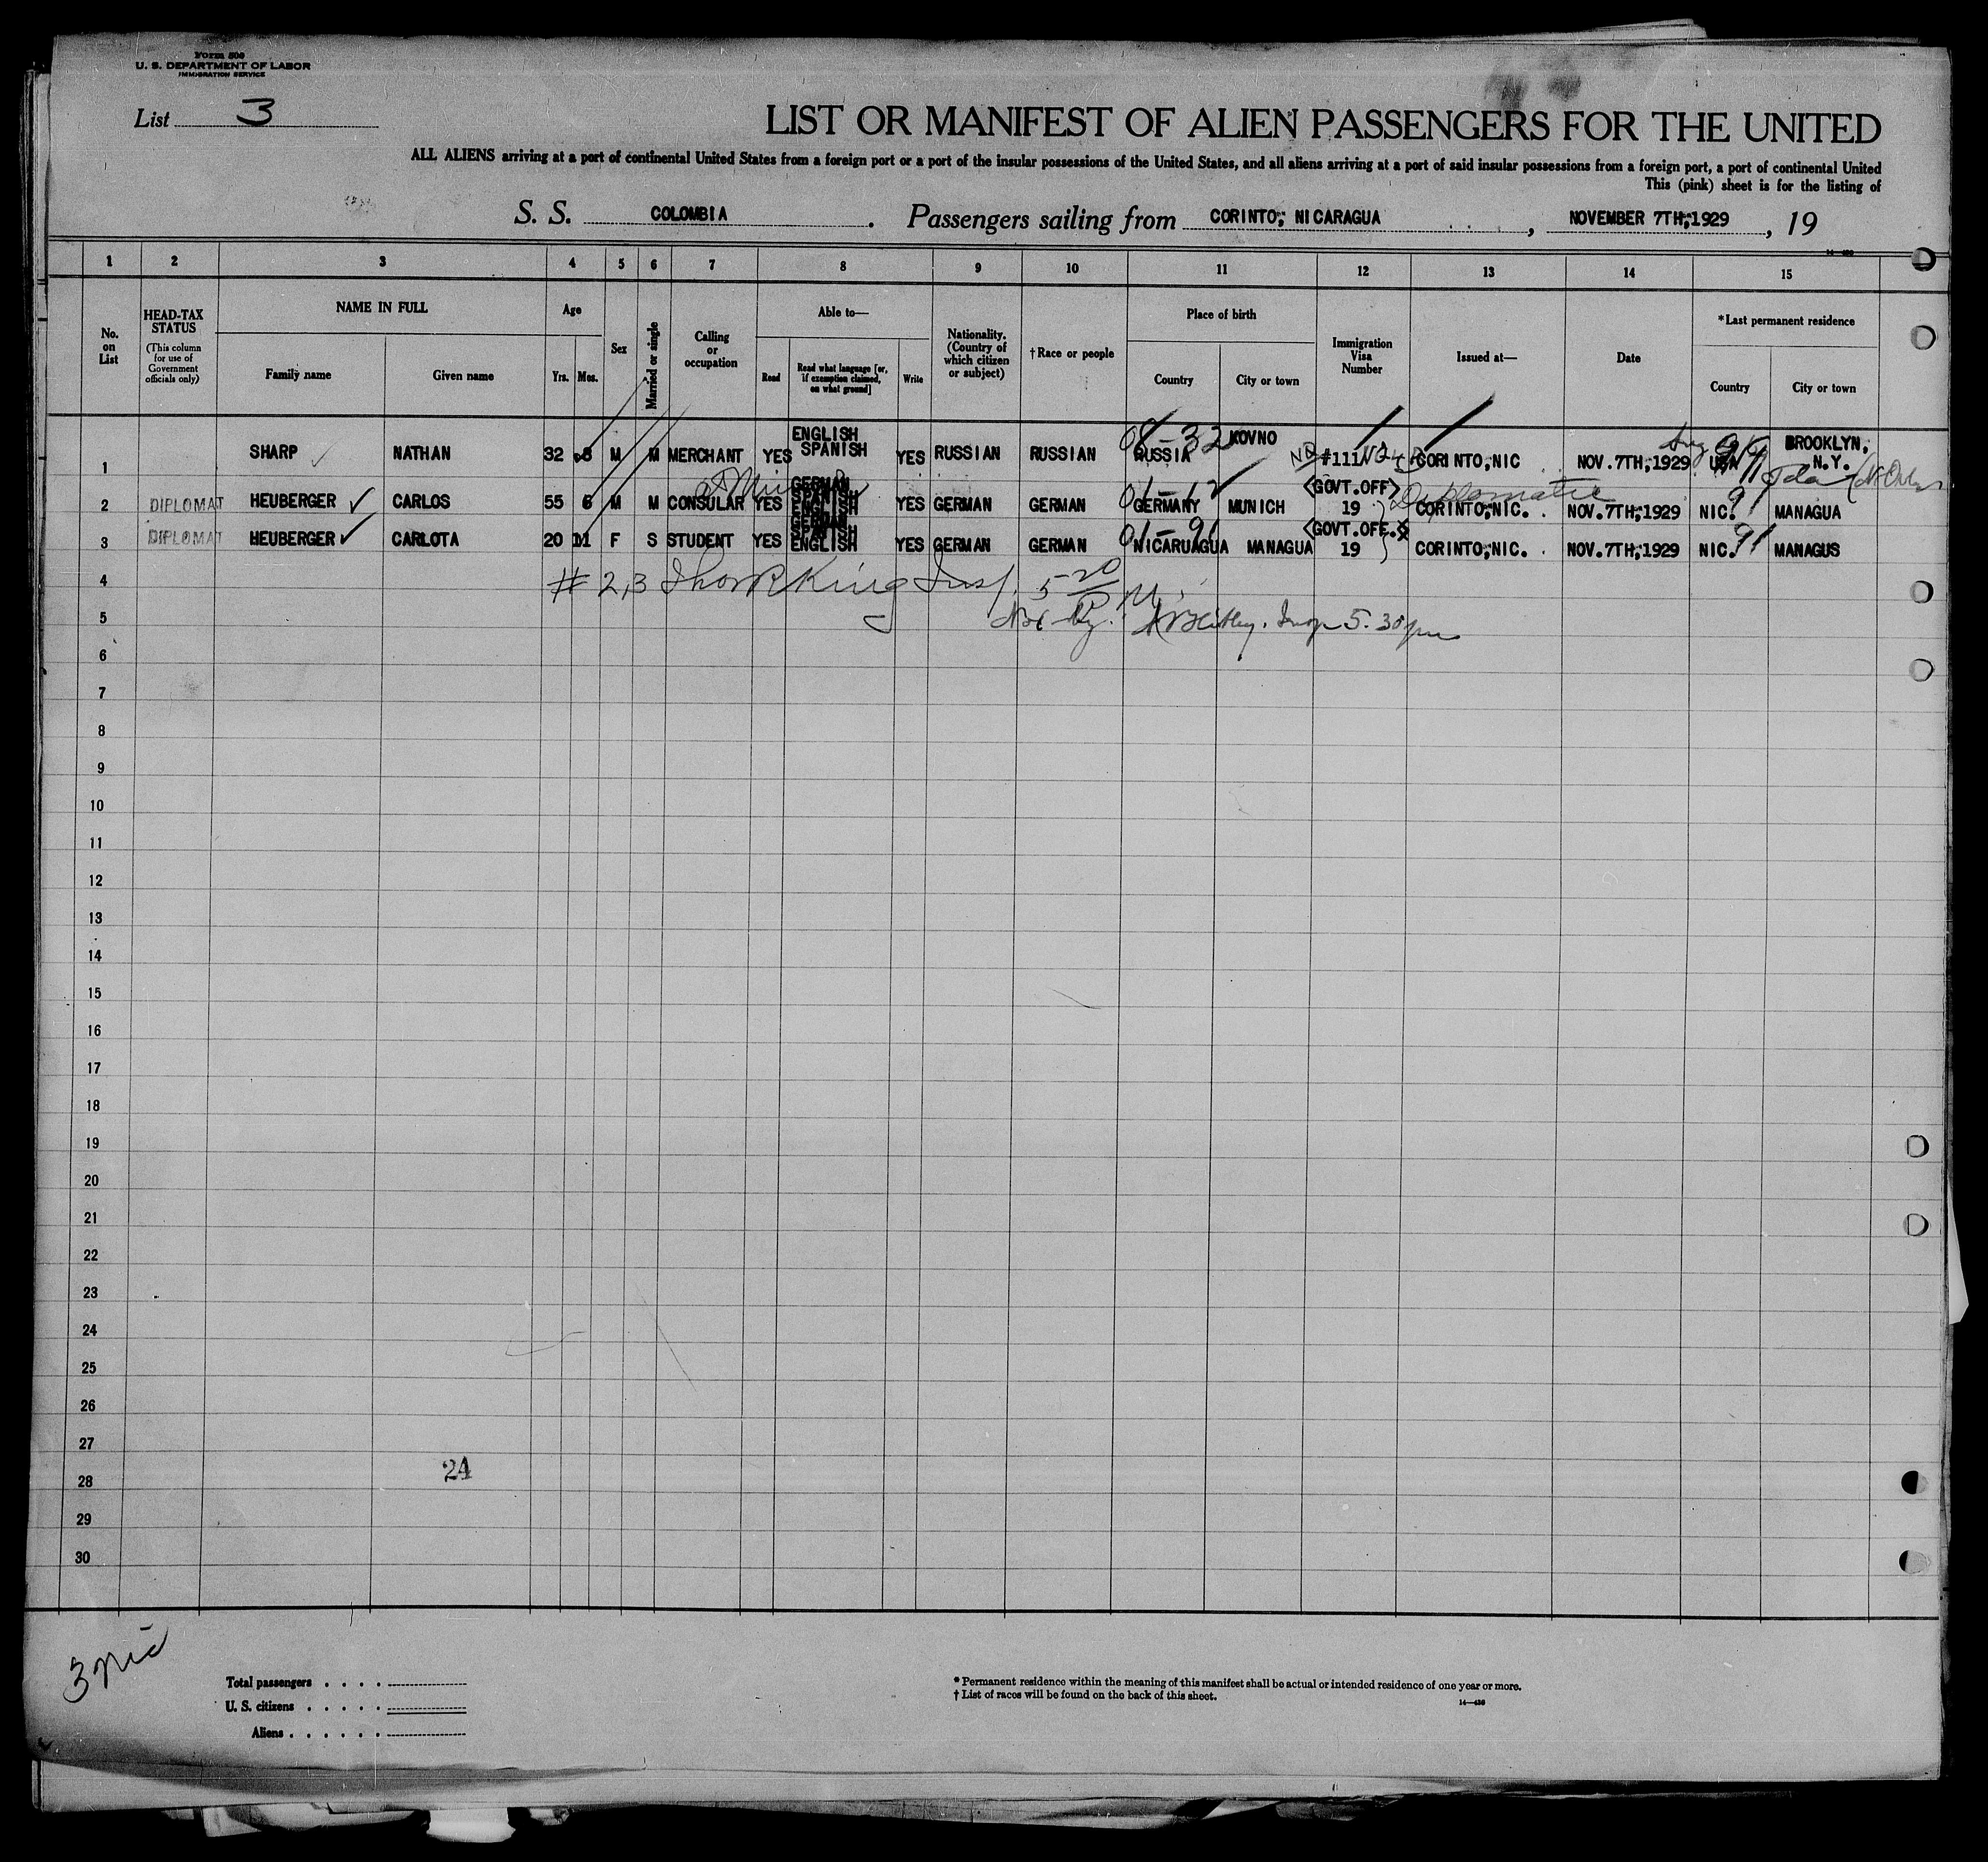 Form 500
U. S. DEPARTMENT OF LABOR
IMMIGRATION SERVICE
List 3
LIST OR MANIFEST OF ALIEN PASSENGERS FOR THE UNITED
ALL ALIENS arriving at a port of continental United States from a foreign port or a port of the insular possessions of the United States, and all aliens arriving at a port of said insular possessions from a foreign port, a port of continental United
This (pink) sheet is for the listing of
S. S. COLOMBIA. Passengers sailing from CORINTO; NICARAGUA, NOVEMBER 7TH;1929, 19
1 2 3 4 5 6 7 8 9 10 11 12 13 14 15
No. on List
HEAD-TAX STATUS (This column for use of Government officials only)
NAME IN FULL
Family name Given name
Age
Yrs. Mos.
Sex
Married or single
Calling or occupation
Able to—
Read Read what language [or, if exemption claimed, on what ground] Write
Nationality. (Country of which citizen or subject)
†Race or people
Place of birth
Country City or town
Immigration Visa Number
Issued at—
Date
*Last permanent residence
Country City or town
1 SHARP NATHAN 32 M M MERCHANT YES ENGLISH SPANISH YES RUSSIAN RUSSIAN RUSSIA 08-32 KOVNO #111 CORINTO,NIC NOV.7TH,1929 BROOKLYN, N.Y.
2 DIPLOMAT HEUBERGER CARLOS 55 6 M M CONSULAR YES GERMAN SPANISH ENGLISH YES GERMAN GERMAN GERMANY MUNICH <GOVT.OFF> 19 Diplomatic CORINTO,NIC. NOV.7TH;1929 NIC. 91 MANAGUA
3 DIPLOMAT HEUBERGER CARLOTA 20 11 F S STUDENT YES GERMAN SPANISH ENGLISH YES GERMAN GERMAN 01-91 NICARUAGUA MANAGUA <GOVT.OFF. 19 CORINTO,NIC. NOV.7TH;1929 NIC. 91 MANAGUS
4 # 2,3 King Insp. 5 20 P.M.
5 5.30 pm
6
7
8
9
10
11
12
13
14
15
16
17
18
19
20
21
22
23
24
25
26
27
28 24
29
30
Total passengers . . . .
U. S. citizens . . . . .
Aliens . . . . . .
* Permanent residence within the meaning of this manifest shall be actual or intended residence of one year or more.
† List of races will be found on the back of this sheet.
14—436